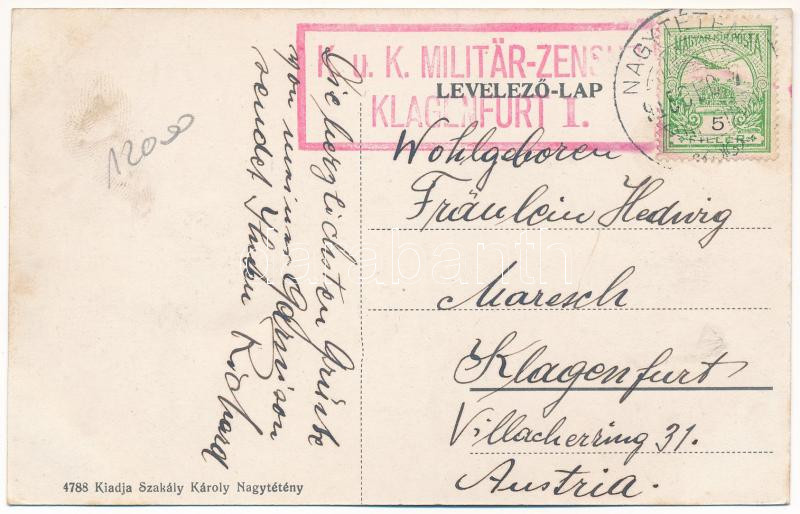 K. u. K. MILITÄR-ZENSUR
KLAGENFURT I.
LEVELEZŐ-LAP
NAGYTÉTÉNY
MAGYAR KIR. POSTA
5
FILLÉR
Wohlgeboren
Fräulein Hedwig
Maresch
Klagenfurt
Villacherring 31.
Austria.
Die herzlichsten Grüsse
von meiner Garnison
sendet Ihnen Richard
12000
4788 Kiadja Szakály Károly Nagytétény
darabanth